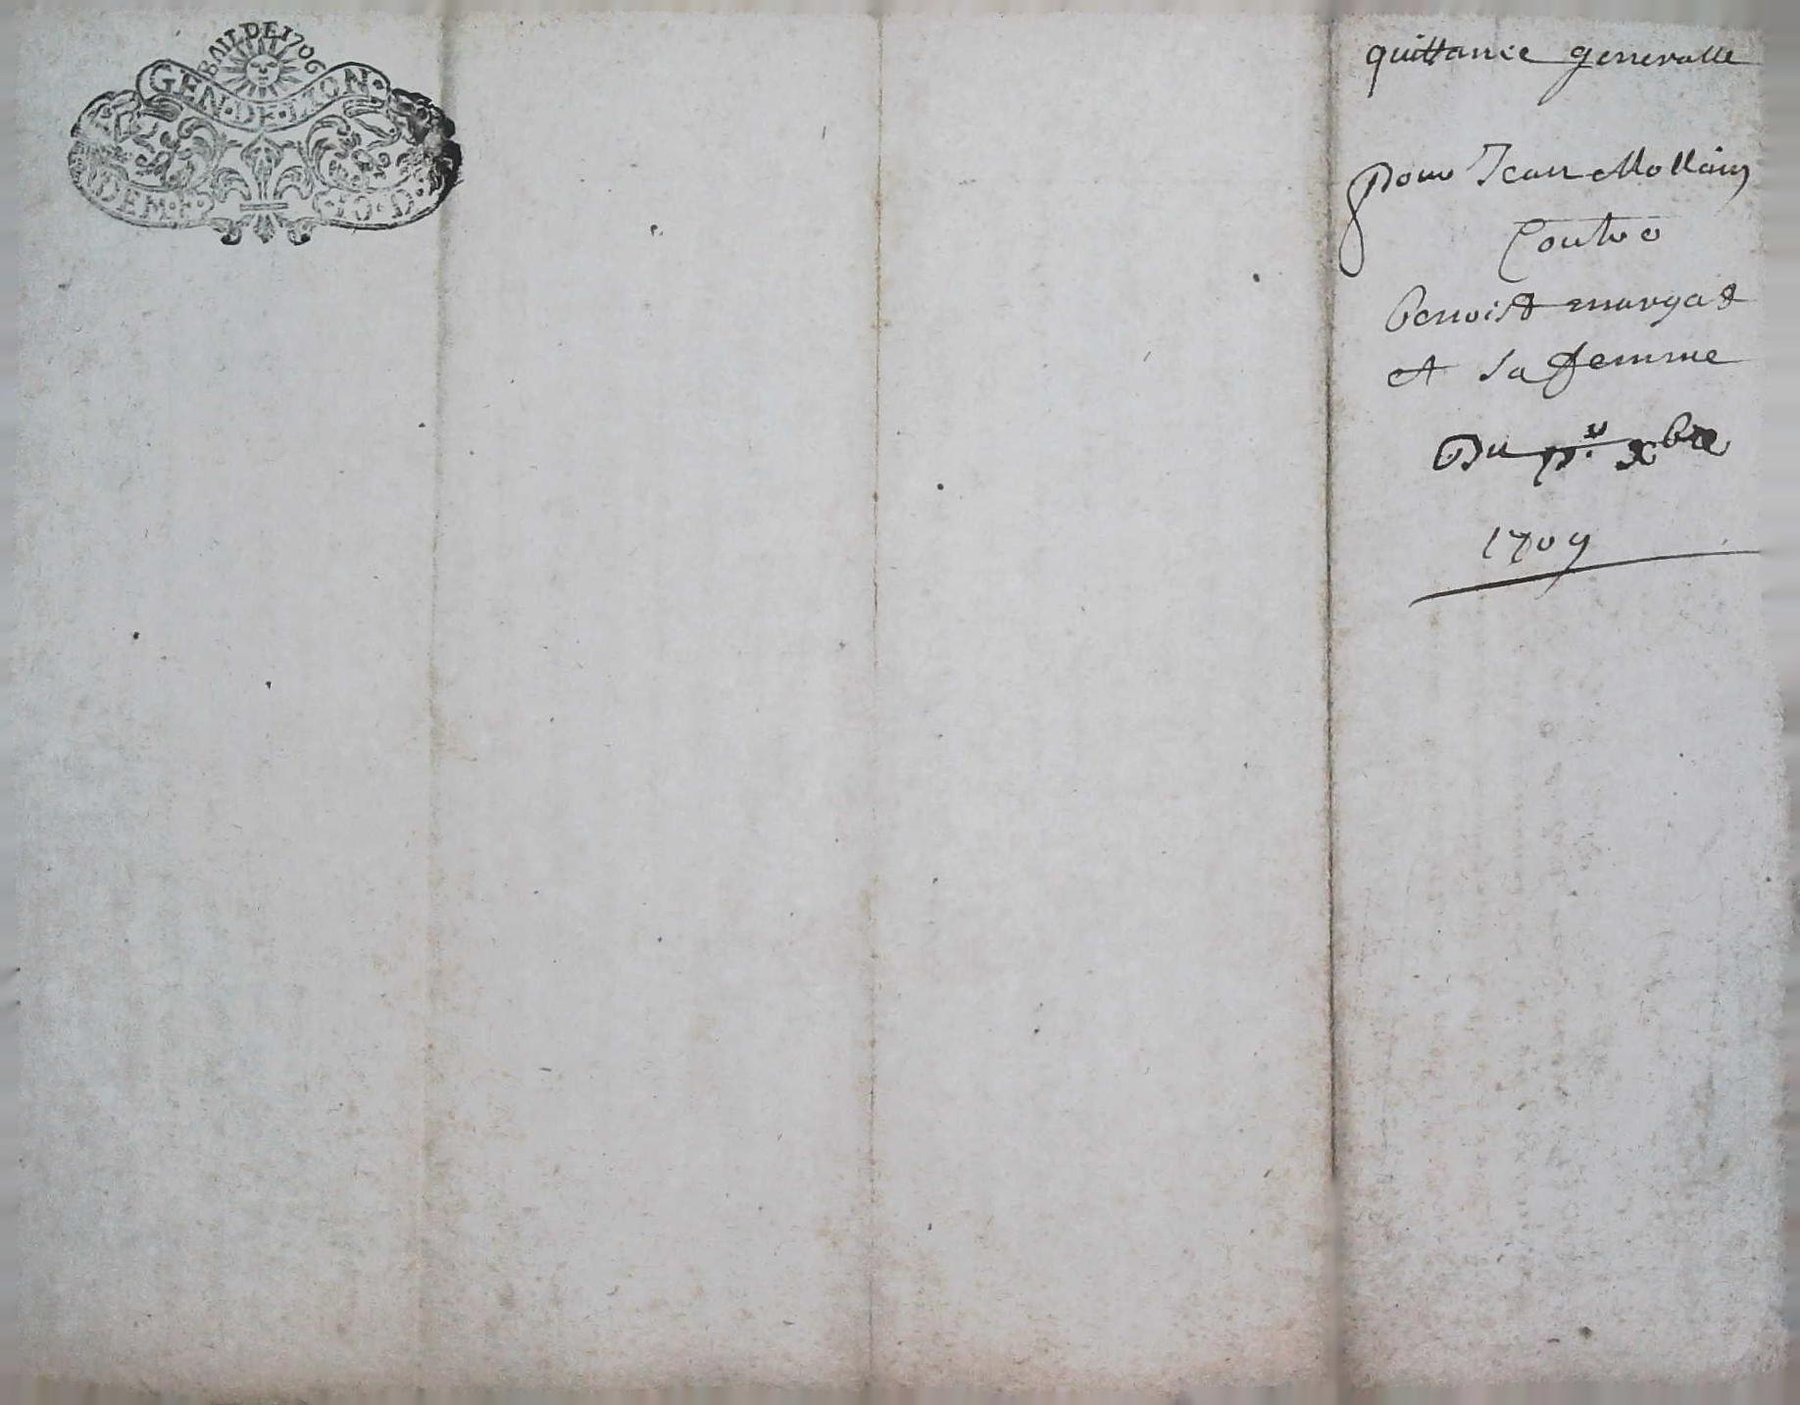 BAIL DE 1706
GEN·DE·LION·
DEM·F· ·10·D·
quittance generalle
pour Jean Mollain
Contre
benoist margat
et sa femme
Du pr. xbre
1709